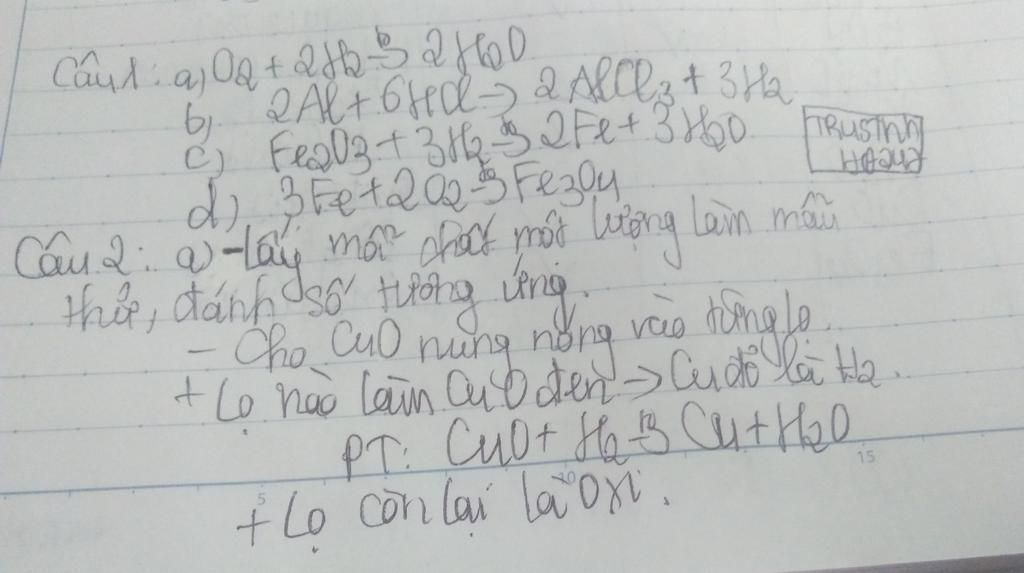 Câu 1: a) O2 + 2H2 -to-> 2H2O
b) 2Al + 6HCl -> 2AlCl3 + 3H2
c) Fe2O3 + 3H2 -to-> 2Fe + 3H2O
d) 3Fe + 2O2 -to-> Fe3O4
Câu 2: a) - Lấy mỗi chất một lượng làm mẫu
thử, đánh số tương ứng.
- Cho CuO nung nóng vào từng lọ.
+ Lọ nào làm CuO đen -> Cu đỏ là H2.
PT: CuO + H2 -to-> Cu + H2O
+ Lọ còn lại là Oxi.
5
10
15